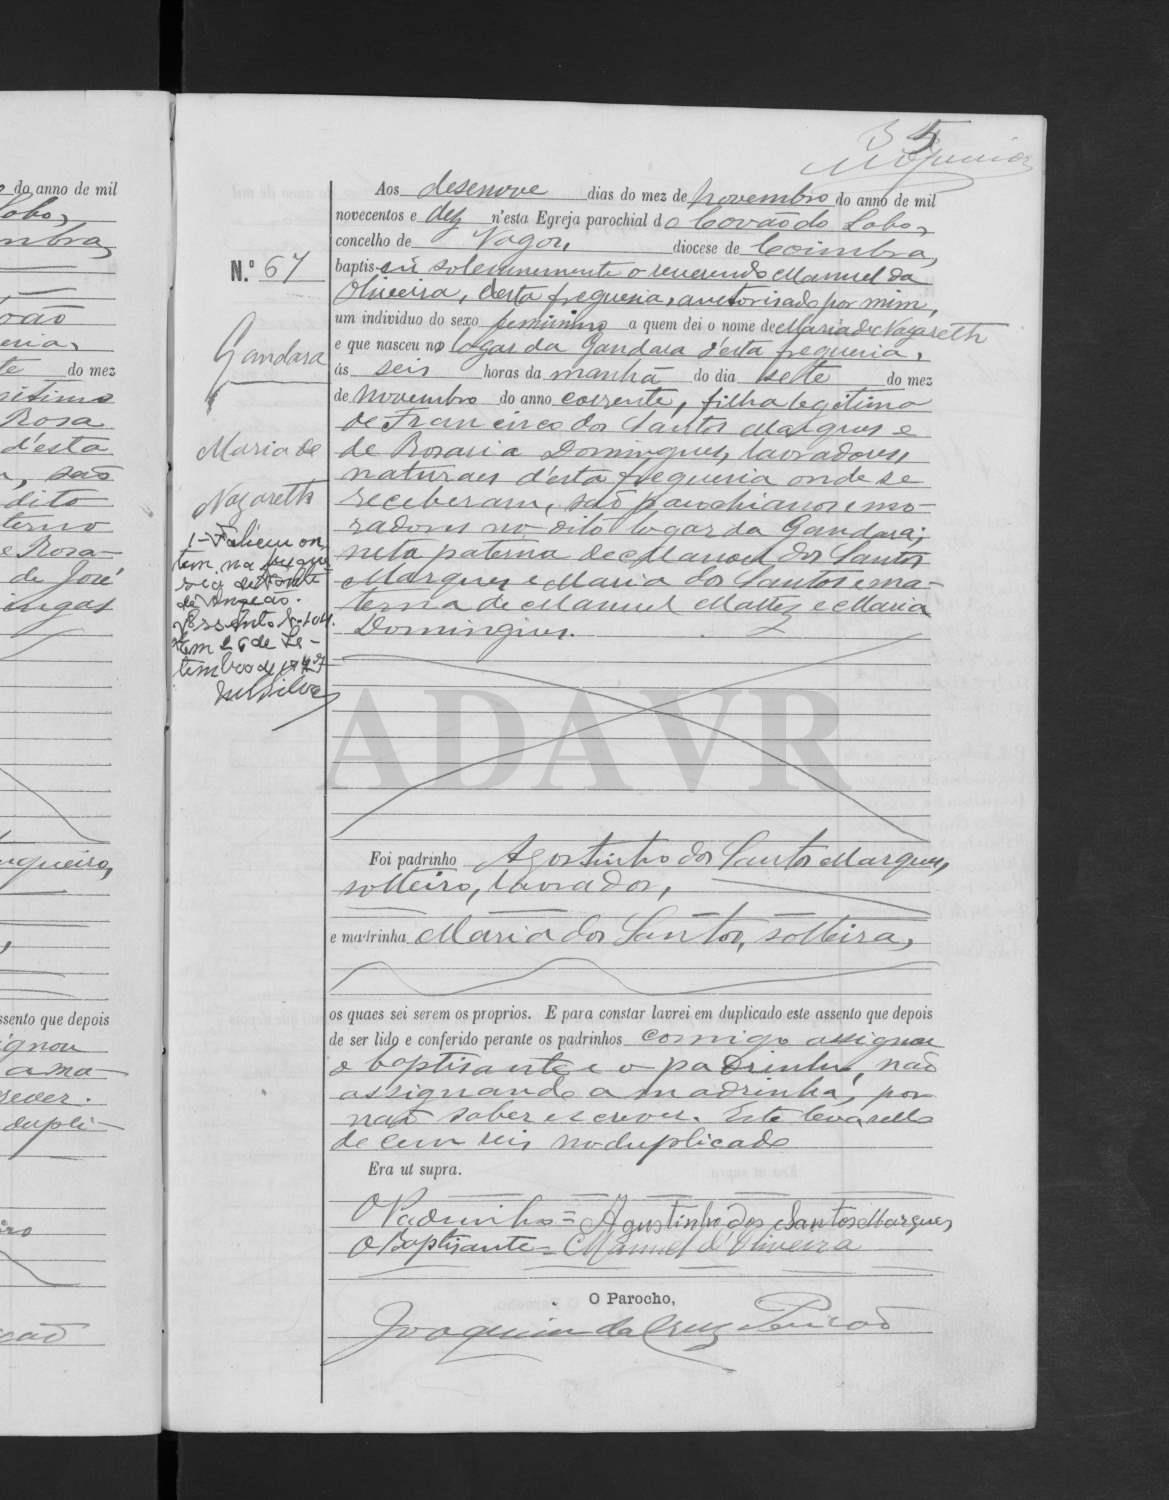 35
do anno de mil
Lobo,
mbra,
oão
te do mez
Rosa
d'esta
, são
dito
terno
e Rosa-
de José
ingas
ugueiro,
ssento que depois
ignou
a ma-
dupli-
N.º 67
Gandara
Maria de
Nazareth
1-Faleceu on
tem na fregue
sia de Fonte
de Angeão.
Assento N.
tem 26 de Se-
tembro de 1947
MSilva
Aos desenove dias do mez de Novembro do anno de mil
novecentos e dez n'esta Egreja parochial do Covão do Lobo,
concelho de Vagos, diocese de Coimbra,
baptisei solemnemente o reverendo Manuel da
Oliveira, desta freguesia, auctorisado por mim,
um individuo do sexo feminino a quem dei o nome de Maria de Nazareth
e que nasceu no logar da Gandara d'esta freguesia,
ás seis horas da manhã do dia sete do mez
de Novembro do anno corrente, filha legitima
de Francisco dos Santos Marques e
de Rosaria Domingues, lavradores,
naturaes d'esta freguesia onde se
receberam, são parochianos e mo-
radores no dito logar da Gandara;
neta paterna de Manoel dos Santos
Marques e Maria dos Santos e ma-
terna de Manuel Mattos e Maria
Domingues.
ADAVR
Foi padrinho Agostinho dos Santos Marques,
solteiro, lavrador,
e madrinha Maria dos Santos, solteira,
os quaes sei serem os proprios. E para constar lavrei em duplicado este assento que depois
de ser lido e conferido perante os padrinhos comigo assignou
o baptisante e o padrinho, não
assignando a madrinha, por
não saber escrever. Este leva sello
de cem reis no duplicado
Era ut supra.
O Padrinho = Agustinho dos Santos Marques
O Baptisante = Manuel d'Oliveira
O Parocho,
Joaquim da Cruz Pericão